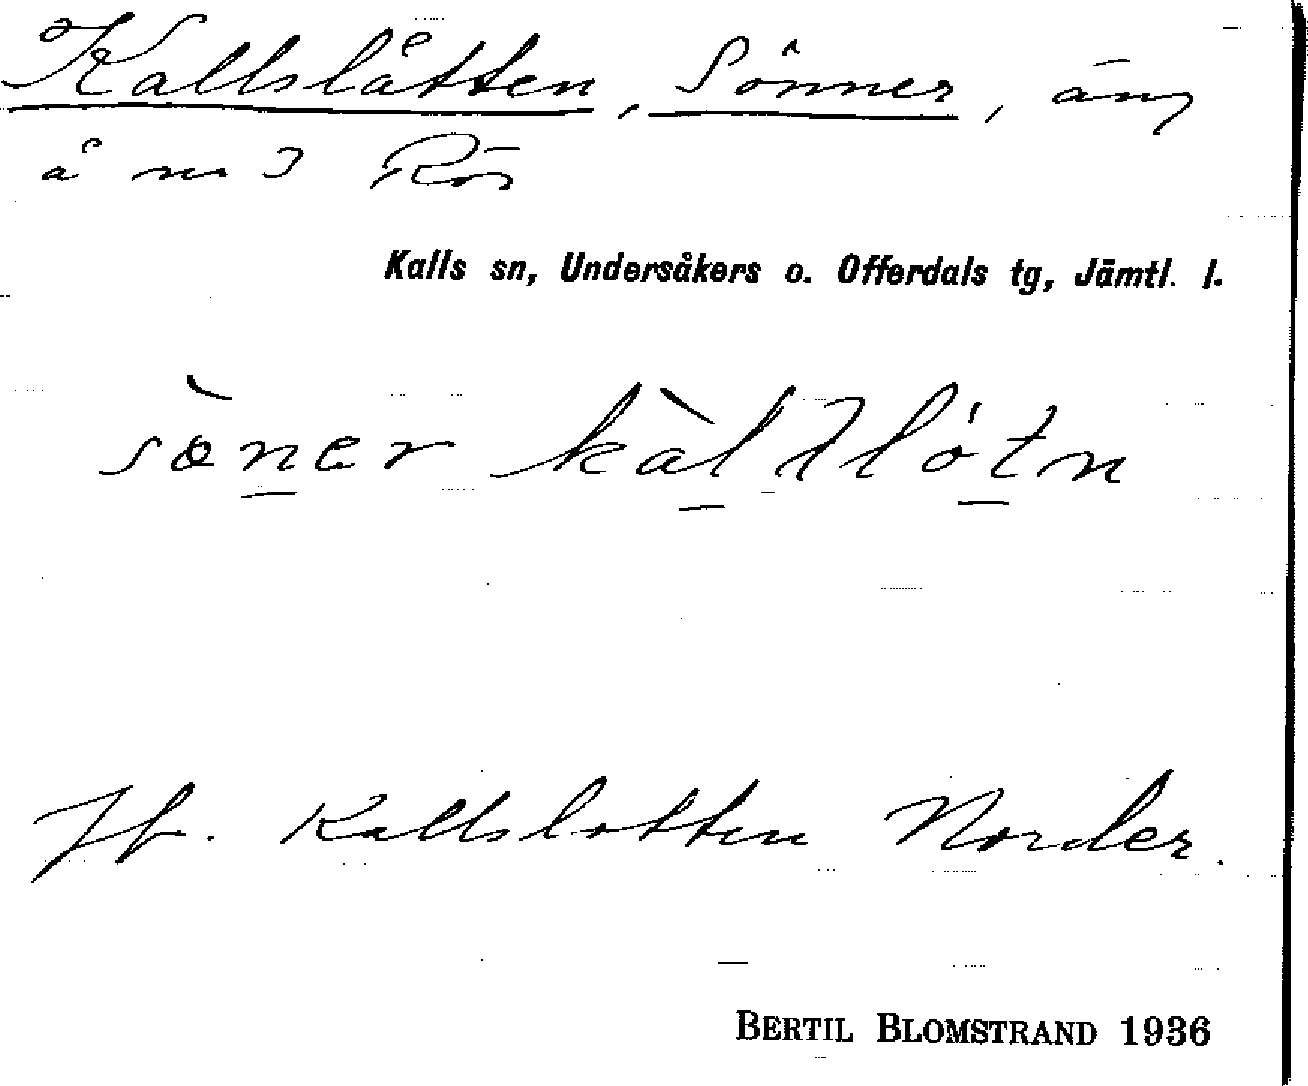 Kallslåtten, Sönner, äng
å nr 3 Rör
Kalls sn, Undersåkers o. Offerdals tg, Jämtl. l.
Jf. Kallslotten Norder.
BERTIL BLOMSTRAND 1936